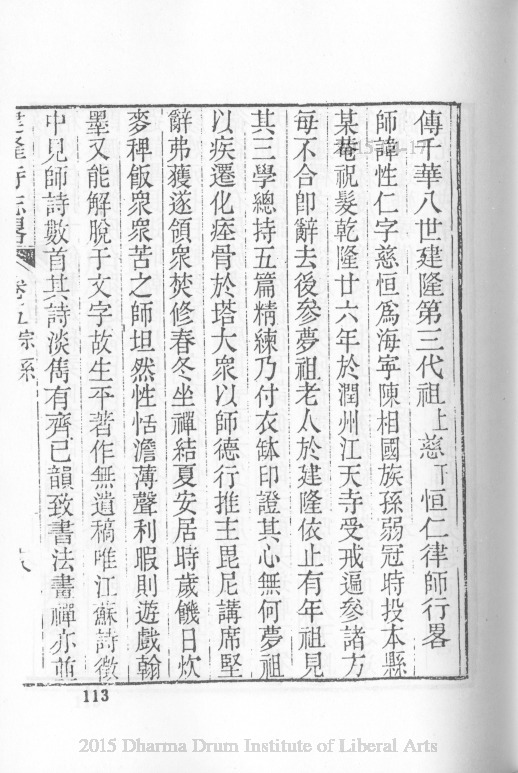 傳千華八世建隆第三代祖上慈下恒仁律師行畧
師諱性仁字慈恒爲海寧陳相國族孫弱冠時投本縣
某菴祝髮乾隆廿六年於潤州江天寺受戒遍參諸方
每不合卽辭去後參夢祖老人於建隆依止有年祖見
其三學總持五篇精練乃付衣缽印證其心無何夢祖
以疾遷化瘞骨於塔大衆以師德行推主毘尼講席堅
辭弗獲遂領衆焚修春冬坐禪結夏安居時歲饑日炊
麥稗飯衆衆苦之師坦然性恬澹薄聲利暇則遊戲翰
墨又能解脫于文字故生平著作無遺稿唯江蘇詩徵
中見師詩數首其詩淡雋有齊己韻致書法書禪亦並
建隆寺志畧 卷五宗系
113
2015 Dharma Drum Institute of Liberal Arts